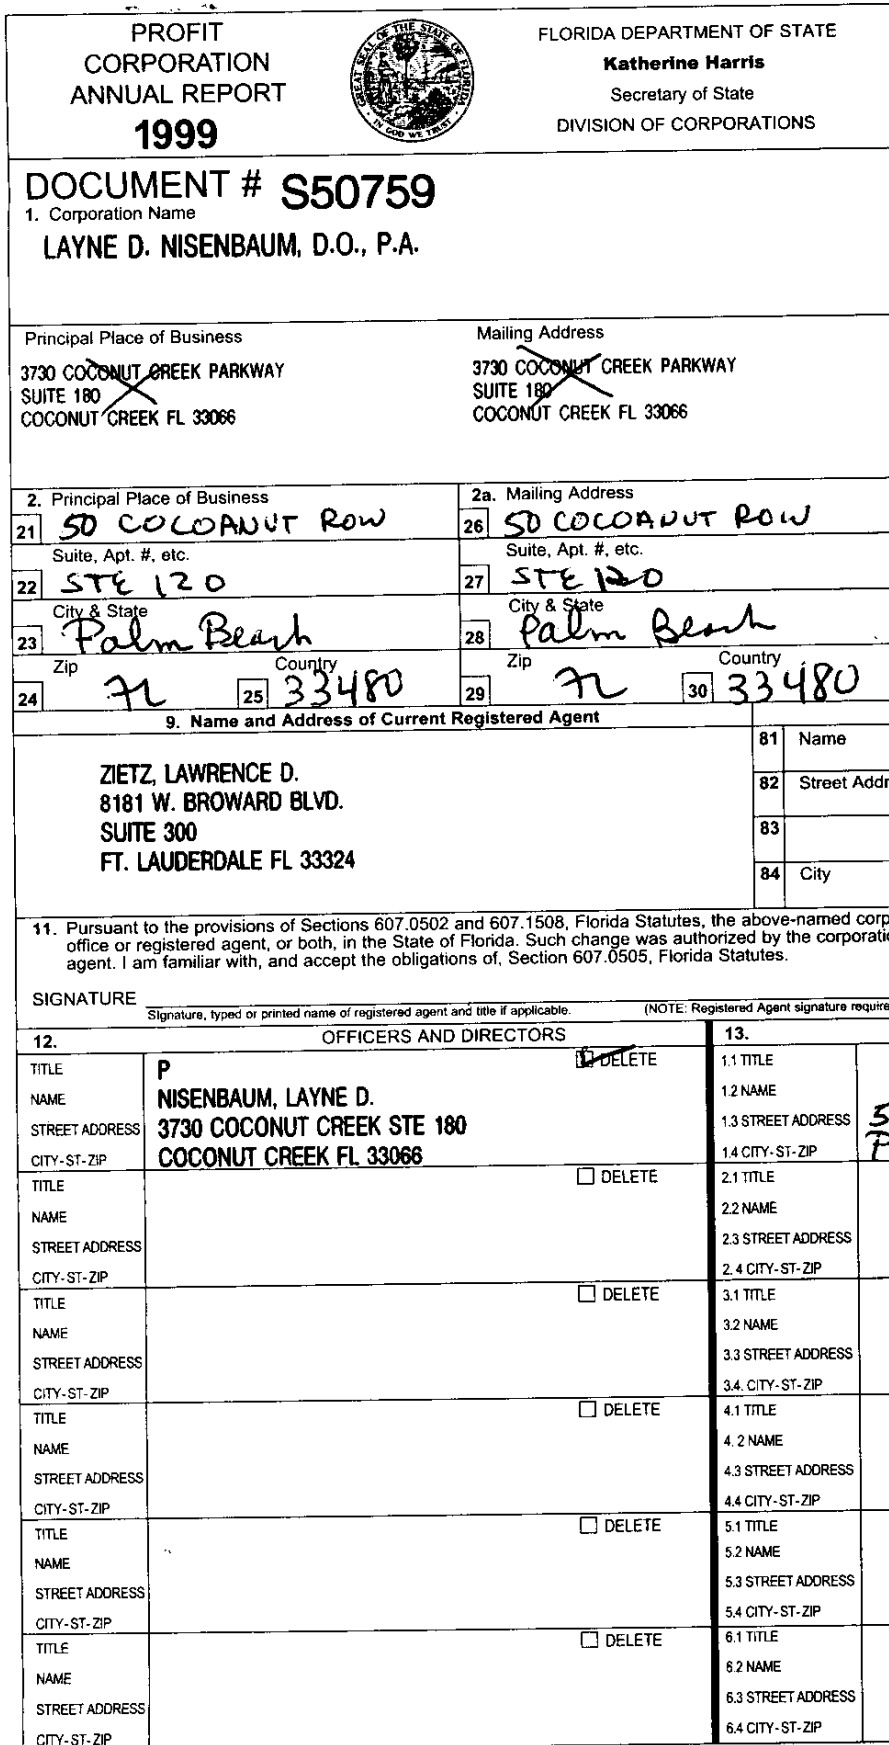 PROFIT
CORPORATION
ANNUAL REPORT
1999
GREAT SEAL OF THE STATE OF FLORIDA
IN GOD WE TRUST
FLORIDA DEPARTMENT OF STATE
Katherine Harris
Secretary of State
DIVISION OF CORPORATIONS
DOCUMENT # S50759
1. Corporation Name
LAYNE D. NISENBAUM, D.O., P.A.
Principal Place of Business
3730 COCONUT CREEK PARKWAY
SUITE 180
COCONUT CREEK FL 33066
Mailing Address
3730 COCONUT CREEK PARKWAY
SUITE 180
COCONUT CREEK FL 33066
2. Principal Place of Business
21 50 COCOANUT ROW
Suite, Apt. #, etc.
22 STE 120
City & State
23 Palm Beach
Zip Country
24 FL 25 33480
2a. Mailing Address
26 50 COCOANUT ROW
Suite, Apt. #, etc.
27 STE 120
City & State
28 Palm Beach
Zip Country
29 FL 30 33480
9. Name and Address of Current Registered Agent
ZIETZ, LAWRENCE D.
8181 W. BROWARD BLVD.
SUITE 300
FT. LAUDERDALE FL 33324
81 Name
82 Street Addr
83
84 City
11. Pursuant to the provisions of Sections 607.0502 and 607.1508, Florida Statutes, the above-named corp
office or registered agent, or both, in the State of Florida. Such change was authorized by the corporatio
agent. I am familiar with, and accept the obligations of, Section 607.0505, Florida Statutes.
SIGNATURE
Signature, typed or printed name of registered agent and title if applicable. (NOTE: Registered Agent signature require
12. OFFICERS AND DIRECTORS 13.
TITLE P DELETE
NAME NISENBAUM, LAYNE D.
STREET ADDRESS 3730 COCONUT CREEK STE 180
CITY-ST-ZIP COCONUT CREEK FL 33066
1.1 TITLE
1.2 NAME
1.3 STREET ADDRESS 5
1.4 CITY-ST-ZIP P
TITLE DELETE
NAME
STREET ADDRESS
CITY-ST-ZIP
2.1 TITLE
2.2 NAME
2.3 STREET ADDRESS
2.4 CITY-ST-ZIP
TITLE DELETE
NAME
STREET ADDRESS
CITY-ST-ZIP
3.1 TITLE
3.2 NAME
3.3 STREET ADDRESS
3.4. CITY-ST-ZIP
TITLE DELETE
NAME
STREET ADDRESS
CITY-ST-ZIP
4.1 TITLE
4.2 NAME
4.3 STREET ADDRESS
4.4 CITY-ST-ZIP
TITLE DELETE
NAME
STREET ADDRESS
CITY-ST-ZIP
5.1 TITLE
5.2 NAME
5.3 STREET ADDRESS
5.4 CITY-ST-ZIP
TITLE DELETE
NAME
STREET ADDRESS
CITY-ST-ZIP
6.1 TITLE
6.2 NAME
6.3 STREET ADDRESS
6.4 CITY-ST-ZIP